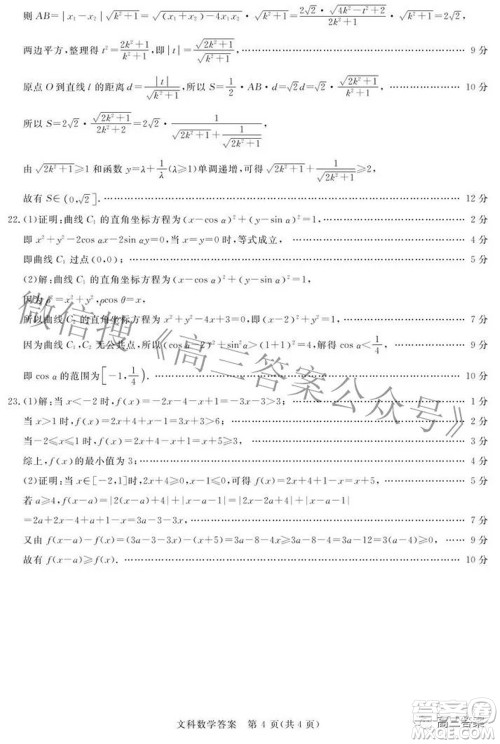 则 AB=|x₁-x₂|√(k²+1)=√((x₁+x₂)²-4x₁x₂)·√(k²+1)=2√2·√(4k²-t²+2)/(2k²+1)·√(k²+1)=2√2,
两边平方,整理得 t²=(2k²+1)/(k²+1),即|t|=√(2k²+1)/√(k²+1). 9分
原点 O 到直线 l 的距离 d=|t|/√(k²+1),所以 S=1/2·AB·d=√2d=√2·√(2k²+1)/(k²+1). 10分
所以 S=2√2·√(2k²+1)/(2k²+2)=2√2·1/(√(2k²+1)+1/√(2k²+1)),
由√(2k²+1)≥1 和函数 y=λ+1/λ(λ≥1)单调递增,可得√(2k²+1)+1/√(2k²+1)≥2,
故有 S∈(0,√2]. 12分
22.(1)证明:曲线 C₁ 的直角坐标方程为(x-cos α)²+(y-sin α)²=1, 2分
即 x²+y²-2cos αx-2sin αy=0,当 x=0,y=0 时,等式成立, 4分
即曲线 C₁ 过点(0,0); 5分
(2)解:曲线 C₁ 的直角坐标方程为(x-cos α)²+(y-sin α)²=1,
因为ρ²=x²+y²,ρcos θ=x,
所以曲线 C₂ 的直角坐标方程为x²+y²-4x+3=0,即(x-2)²+y²=1, 7分
因为曲线 C₁,C₂ 无公共点,所以(cos α-2)²+sin²α>4,解得 cos α<1/4, 9分
即 cos α 的范围为[-1,1/4). 10分
23.(1)解:当 x<-2 时,f(x)=-2x-4+1-x=-3-3x>3; 1分
当 x>1 时,f(x)=2x+4+x-1=3x+3>6; 2分
当-2≤x≤1 时,f(x)=2x+4+1-x=x+5≥3, 4分
综上,f(x)的最小值为 3; 5分
(2)证明:当 x∈[-2,1]时,2x+4≥0,x-1≤0,可得 f(x)=2x+4+1-x=x+5,
若 a≥4,f(x-a)=|2(x-a)+4|+|x-a-1|=|2x+4-2a|+|x-a-1|
=2a+2x-4+a+1-x=3a-3-3x, 7分
又由 f(x-a)-f(x)=(3a-3-3x)-(x+5)=3a-8-4x≥3a-8-4=3a-12=3(a-4)≥0, 9分
故有 f(x-a)≥f(x). 10分
微信搜《高三答案公众号》
文科数学答案 第 4 页(共 4 页)
高三答案